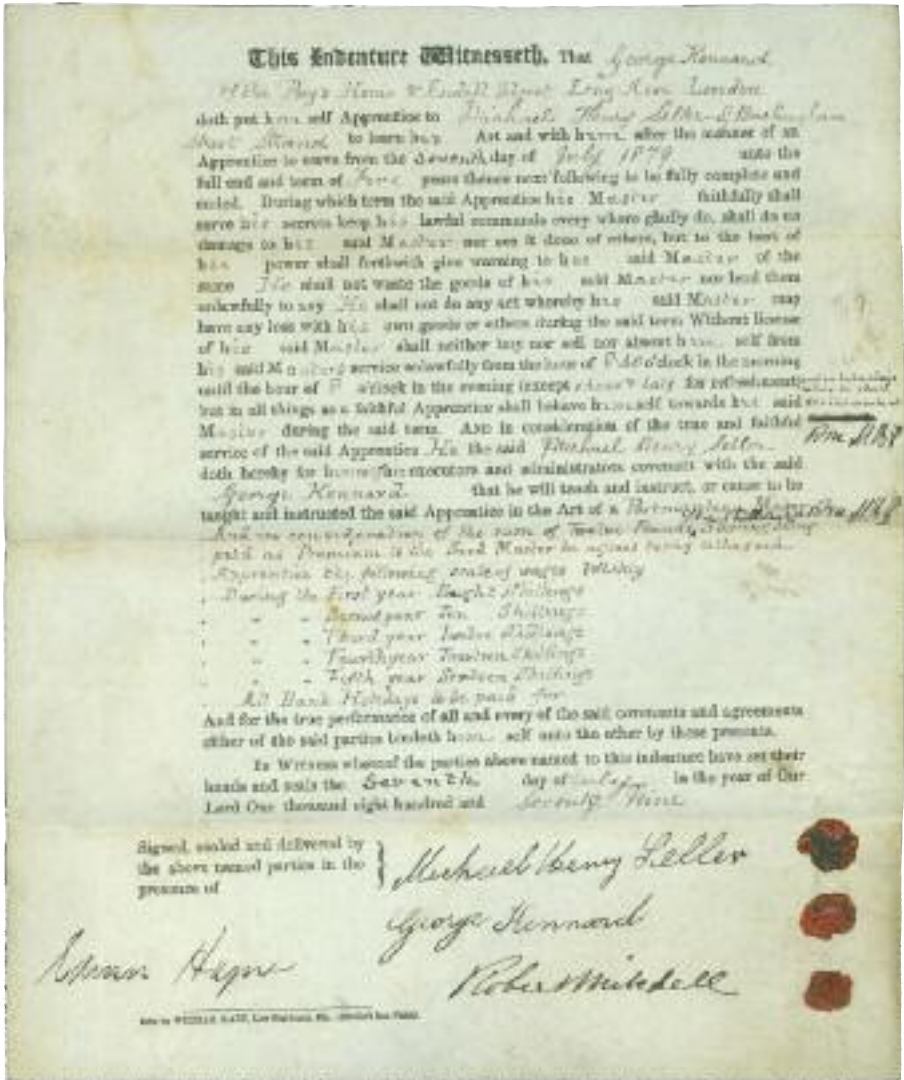 This Indenture Witnesseth, That George Kennard
of the Boys Home Endell Street Long Acre London
doth put him self Apprentice to Michael Henry Seller Buckingham
Street Strand to learn his Art and with him after the manner of an
Apprentice to serve from the Seventh day of July 1879 unto the
full end and term of Five years thence next following to be fully complete and
ended. During which term the said Apprentice his Master faithfully shall
serve his secrets keep his lawful commands every where gladly do, shall do no
damage to his said Master nor see it done of others, but to the best of
his power shall forthwith give warning to his said Master of the
same He shall not waste the goods of his said Master nor lend them
unlawfully to any He shall not do any act whereby his said Master may
have any loss with his own goods or others during the said term Without license
of his said Master shall neither buy nor sell nor absent him self from
his said Masters service unlawfully from the hour of 8 o'clock in the morning
until the hour of 8 o'clock in the evening (except for refreshment
but in all things as a faithful Apprentice shall behave himself towards his said
Master during the said term. AND in consideration of the true and faithful
service of the said Apprentice He the said Michael Henry Seller
doth hereby for himself his executors and administrators covenant with the said
George Kennard that he will teach and instruct, or cause to be
taught and instructed the said Apprentice in the Art of a
And in consideration of the sum of Twelve Pounds
paid as Premium to the said Master he agrees to pay the said
Apprentice the following scale of wages Weekly
During the First year Eight Shillings
" " " Second year Ten Shillings
" " " Third year Twelve Shillings
" " " Fourth year Fourteen Shillings
" " " Fifth year Sixteen Shillings
All Bank Holidays to be paid for
And for the true performance of all and every of the said covenants and agreements
either of the said parties bindeth him self unto the other by these presents.
In Witness whereof the parties above named to this indenture have set their
hands and seals the Seventh day of July in the year of Our
Lord One thousand eight hundred and Seventy Nine
Signed, sealed and delivered by
the above named parties in the
presence of
Michael Henry Seller
George Kennard